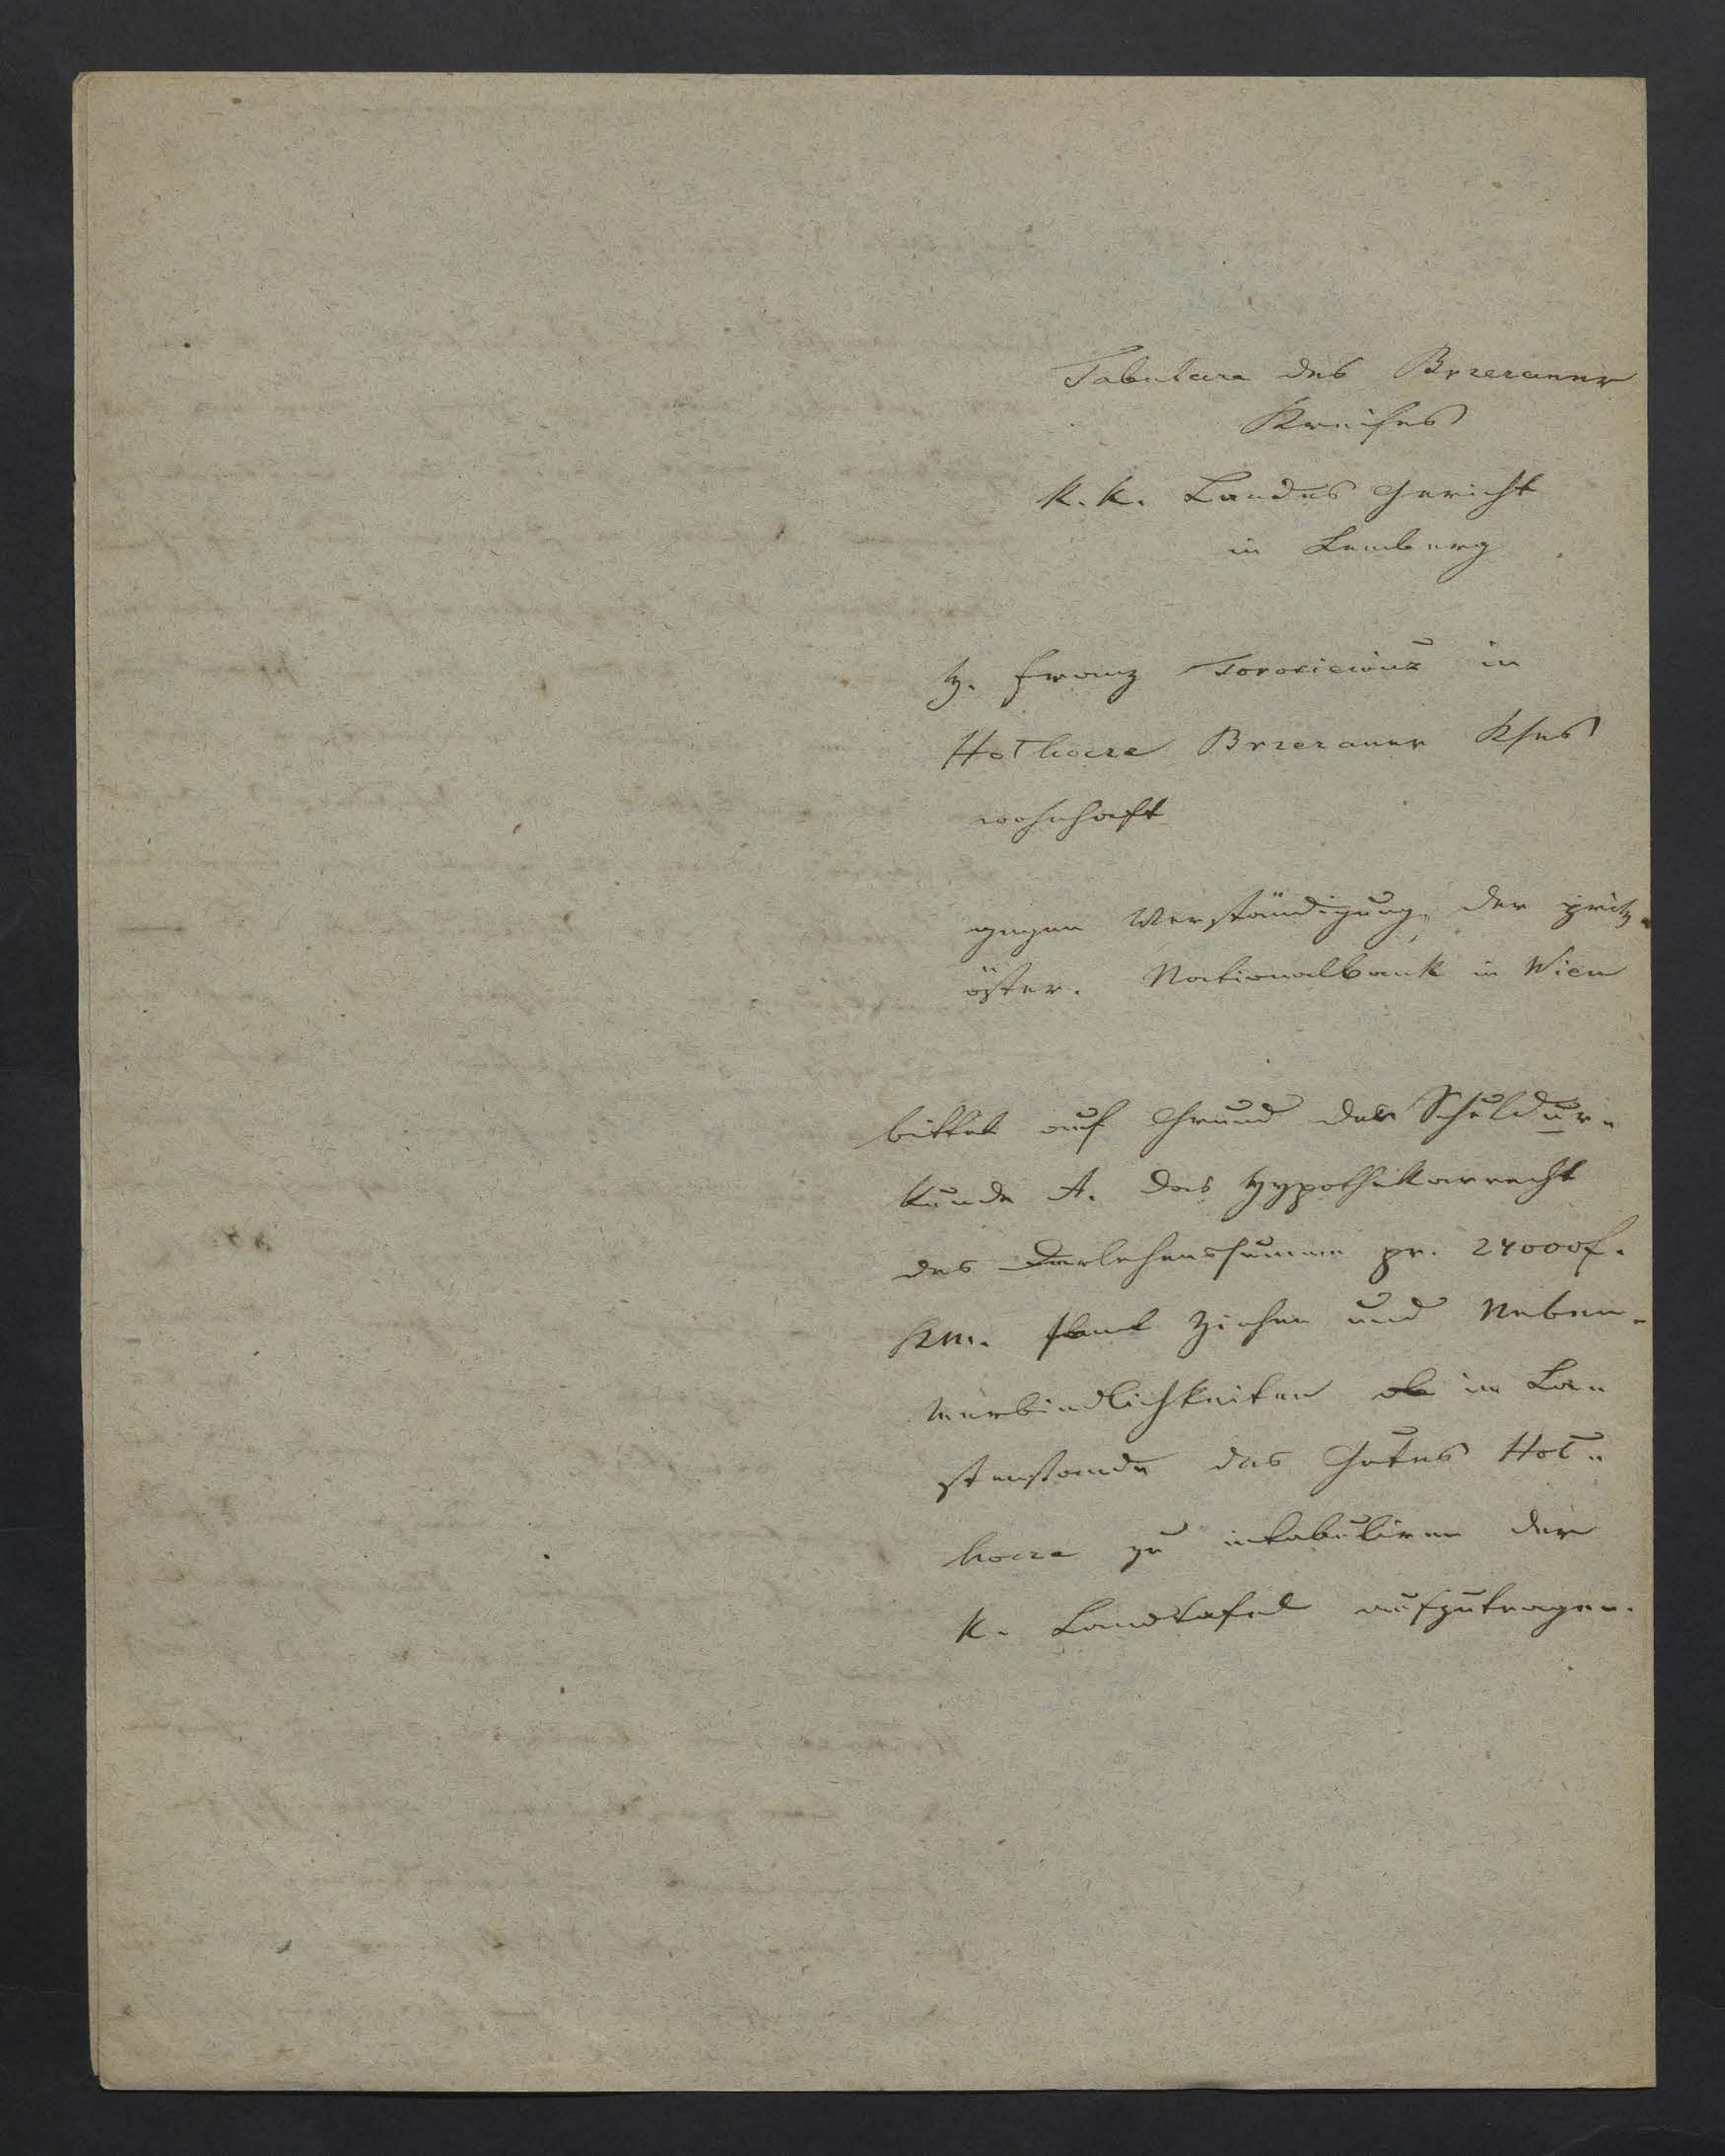 Tabulare des Brzezaner
Kreises
K. K. Landes Gericht
in Lemberg
H. Franz Torosiewicz in
Hothocze Brzezaner Kses
wohnhaft
gegen Verständigung der priv.
öster. Nationalbank in Wien
bittet auf Grund der Schuldur-
kunde A. das Hypothekarrecht
des Darlehenssumme pr. 24000f.
KM. samt Zinsen und Neben-
verbindlichkeiten im La-
stenstande des Gutes Hot-
hocze zu intabuliren der
K. Landtafel aufzutragen.